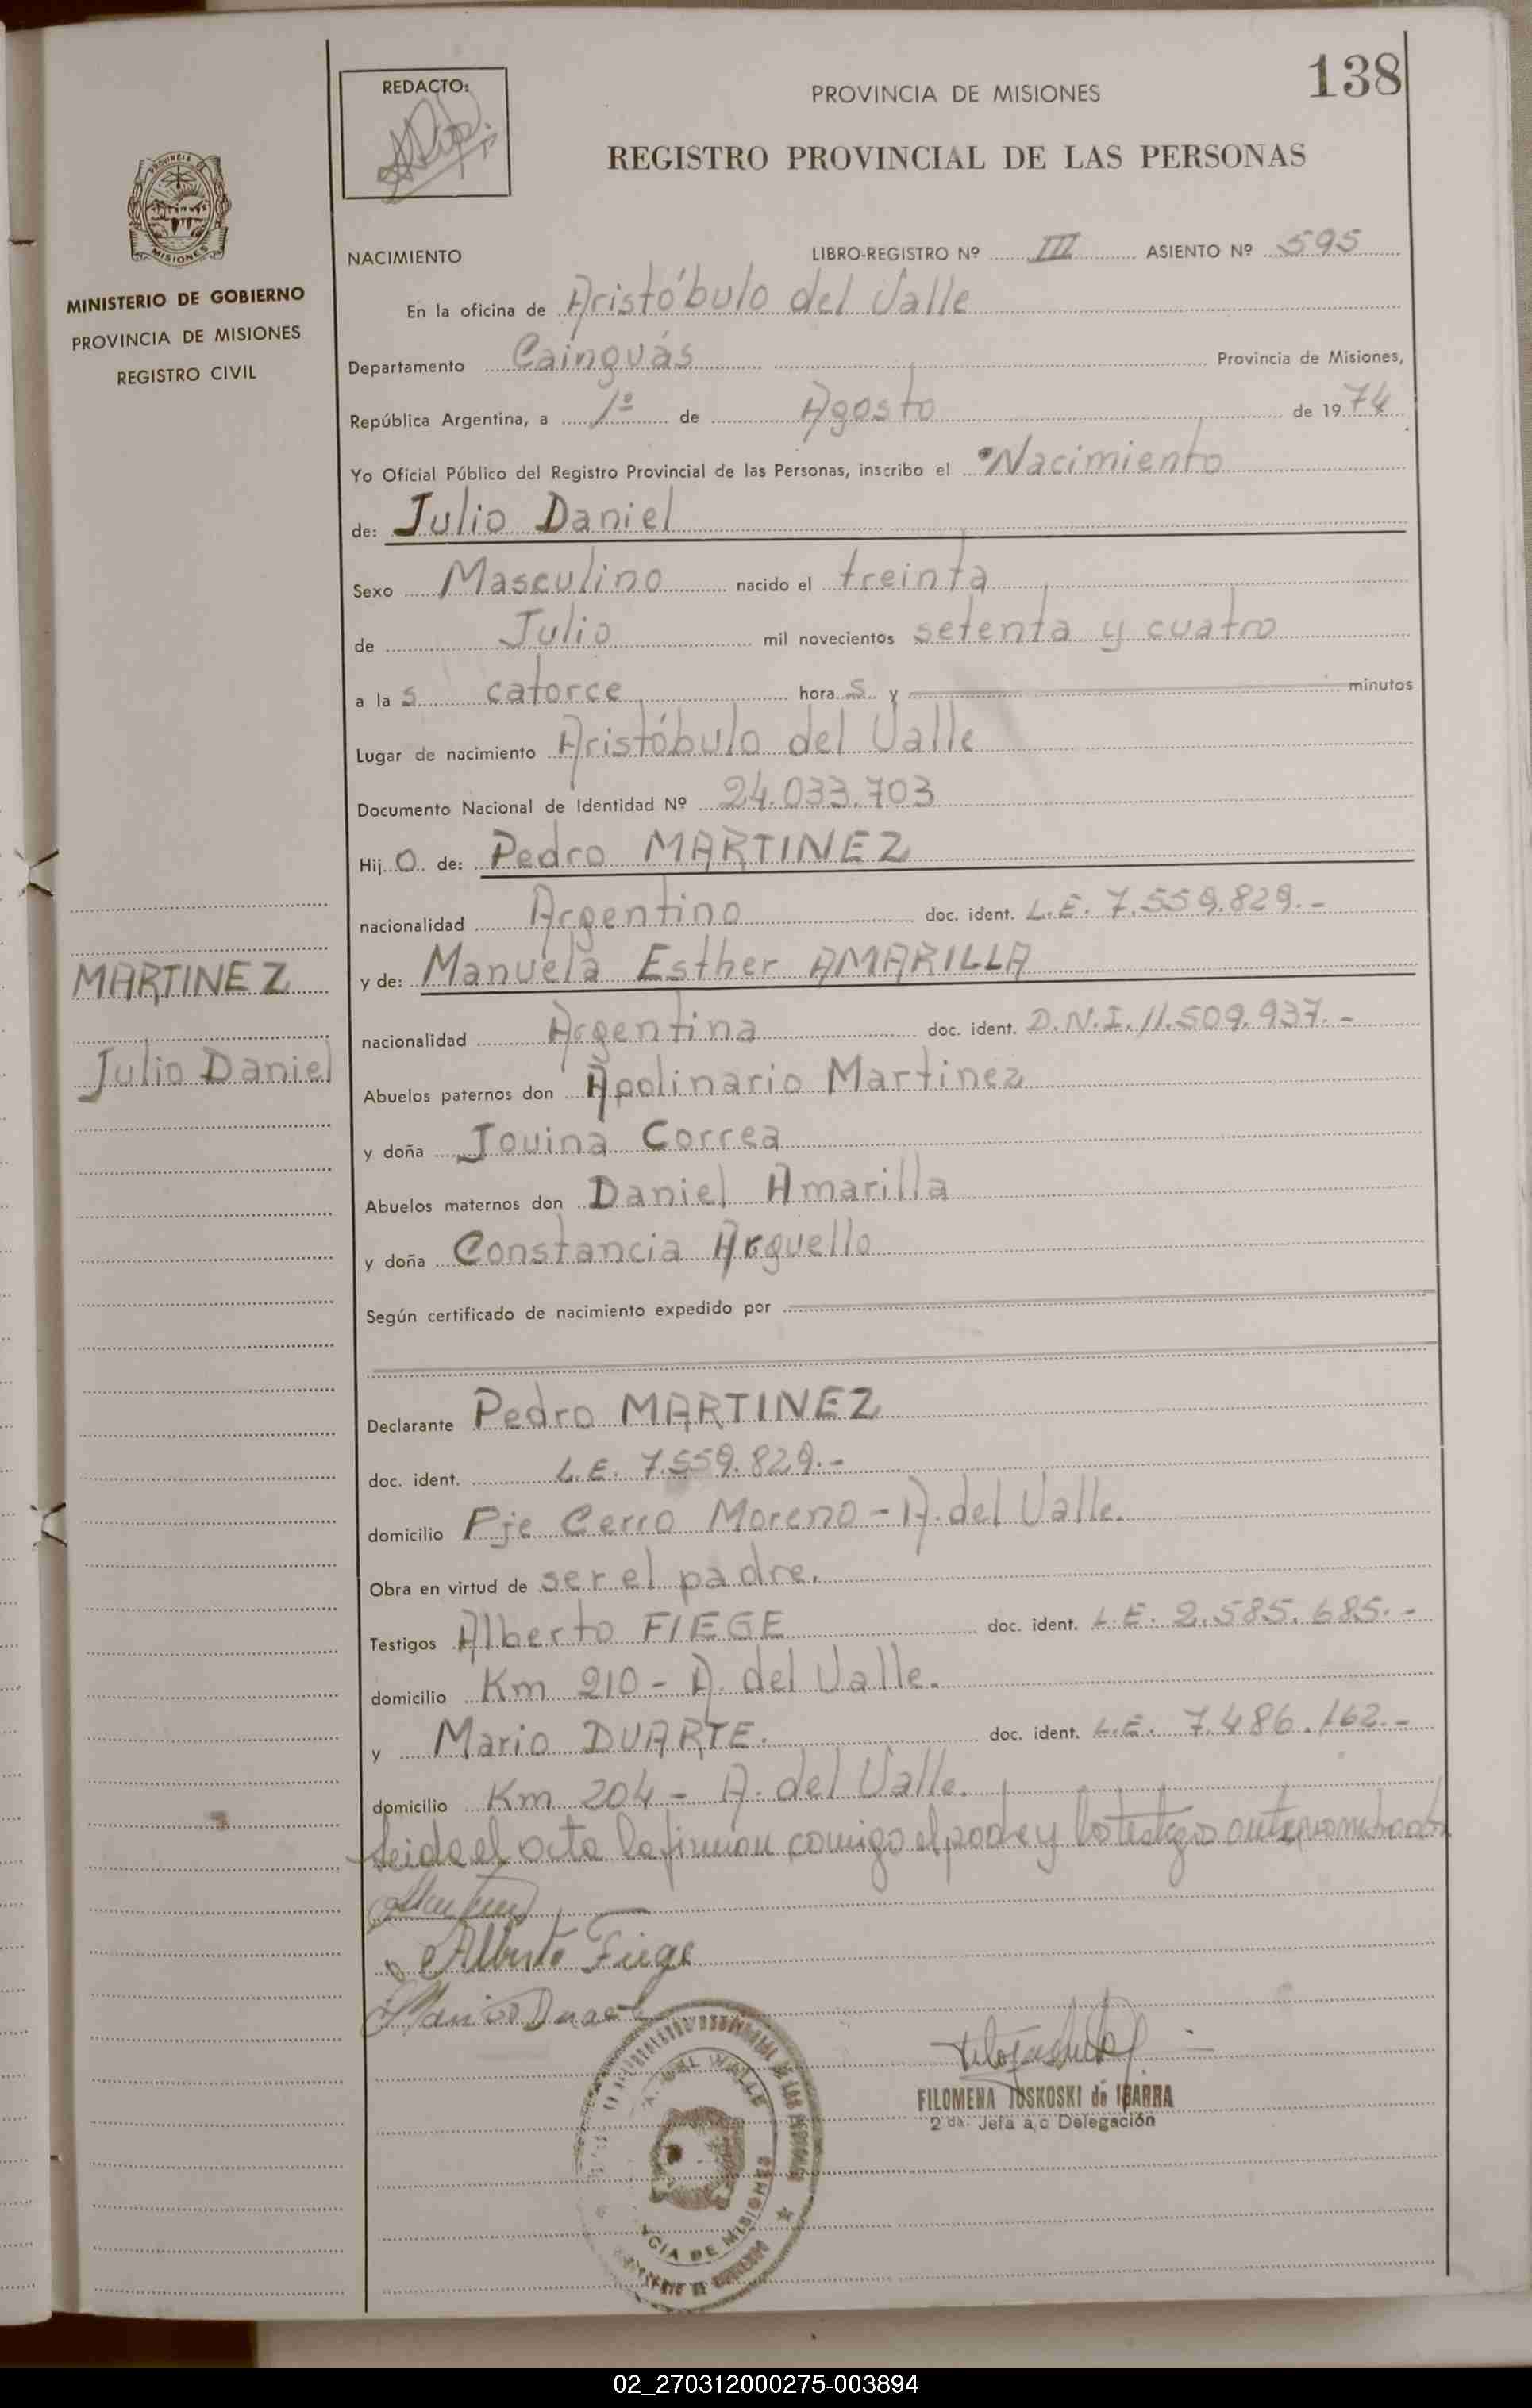 138
REDACTO:
PROVINCIA DE MISIONES
REGISTRO PROVINCIAL DE LAS PERSONAS
MISIONES
MINISTERIO DE GOBIERNO
PROVINCIA DE MISIONES
REGISTRO CIVIL
NACIMIENTO LIBRO-REGISTRO Nº III ASIENTO Nº 595
En la oficina de Aristóbulo del Valle
Departamento Cainguás Provincia de Misiones,
República Argentina, a 1º de Agosto de 1974
Yo Oficial Público del Registro Provincial de las Personas, inscribo el Nacimiento
de: Julio Daniel
Sexo Masculino nacido el treinta
de Julio mil novecientos setenta y cuatro
a la s catorce hora s y minutos
Lugar de nacimiento Aristóbulo del Valle
Documento Nacional de Identidad Nº 24.033.703
Hij o de: Pedro MARTINEZ
nacionalidad Argentino doc. ident. L.E. 7.559.829.-
MARTINEZ
Julio Daniel
y de: Manuela Esther AMARILLA
nacionalidad Argentina doc. ident. D.N.I. 11.509.937.-
Abuelos paternos don Apolinario Martinez
y doña Jovina Correa
Abuelos maternos don Daniel Amarilla
y doña Constancia Arguello
Según certificado de nacimiento expedido por
Declarante Pedro MARTINEZ
doc. ident. L.E. 7.559.829.-
domicilio Pje Cerro Moreno - A. del Valle.
Obra en virtud de ser el padre.
Testigos Alberto FIEGE doc. ident. L.E. 2.585.685.-
domicilio Km 210 - A. del Valle.
y Mario DUARTE. doc. ident. L.E. 7.486.162.-
domicilio Km 204 - A. del Valle.
Leida el acta la firman conmigo el padre y los testigos
Alberto Fiege
Mario Duarte
A. DEL VALLE
DE MISIONES
FILOMENA JUSKOSKI de IBARRA
2 da. Jefa a/c Delegación
02_270312000275-003894